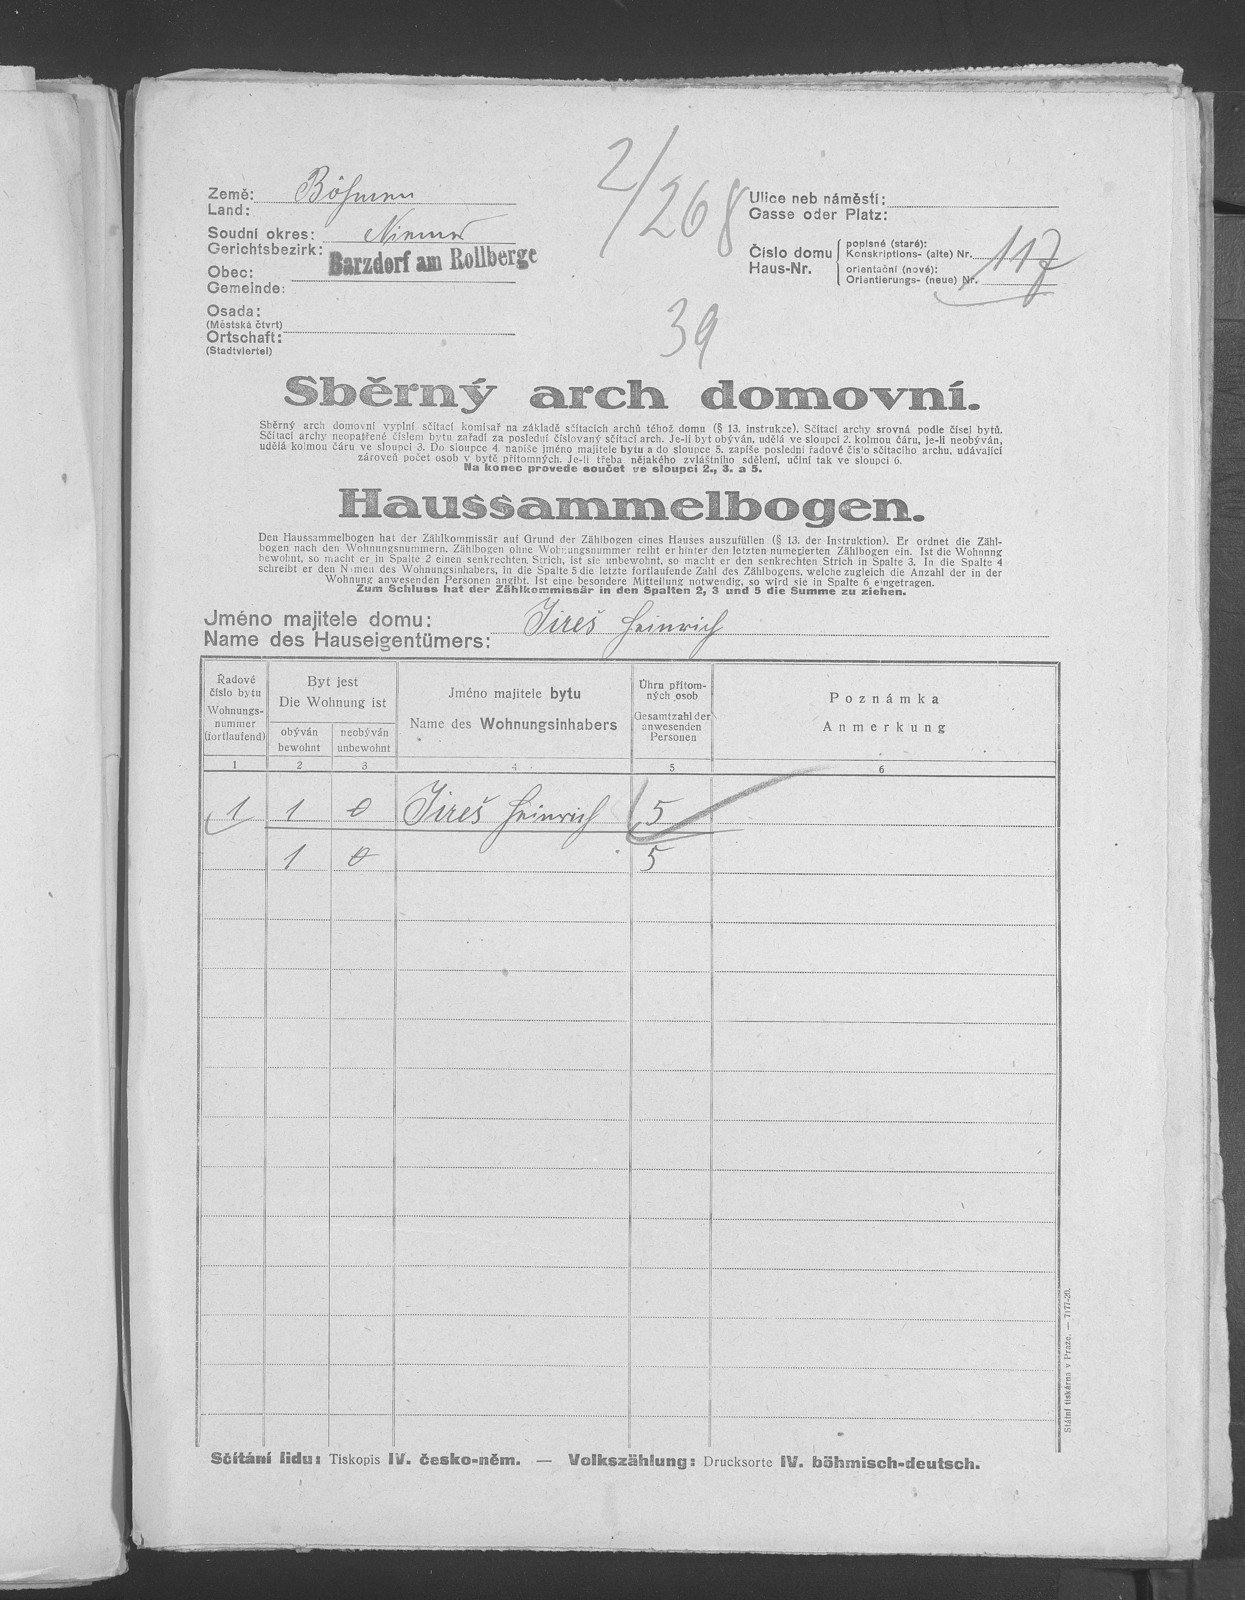 2/268
Země: Böhmen
Land:
Soudní okres: Niemes
Gerichtsbezirk:
Barzdorf am Rollberge
Obec:
Gemeinde:
Osada:
(Městská čtvrt)
Ortschaft:
(Stadtviertel)
Ulice neb náměstí:
Gasse oder Platz:
Číslo domu
Haus-Nr.
popisné (staré):
Konskriptions- (alte) Nr. 117
orientační (nové):
Orientierungs- (neue) Nr.
39
Sběrný arch domovní.
Sběrný arch domovní vyplní sčítací komisař na základě sčítacích archů téhož domu (§ 13. instrukce). Sčítací archy srovná podle čísel bytů.
Sčítací archy neopatřené číslem bytu zařadí za poslední číslovaný sčítací arch. Je-li byt obýván, udělá ve sloupci 2. kolmou čáru, je-li neobýván,
udělá kolmou čáru ve sloupci 3. Do sloupce 4. napíše jméno majitele bytu a do sloupce 5. zapíše poslední řadové číslo sčítacího archu, udávající
zároveň počet osob v bytě přítomných. Je-li třeba nějakého zvláštního sdělení, učiní tak ve sloupci 6.
Na konec provede součet ve sloupci 2., 3. a 5.
Haussammelbogen.
Den Haussammelbogen hat der Zählkommissär auf Grund der Zählbogen eines Hauses auszufüllen (§ 13. der Instruktion). Er ordnet die Zähl-
bogen nach den Wohnungsnummern. Zählbogen ohne Wohnungsnummer reiht er hinter den letzten numerierten Zählbogen ein. Ist die Wohnung
bewohnt, so macht er in Spalte 2 einen senkrechten Strich, ist sie unbewohnt, so macht er den senkrechten Strich in Spalte 3. In die Spalte 4
schreibt er den Namen des Wohnungsinhabers, in die Spalte 5 die letzte fortlaufende Zahl des Zählbogens, welche zugleich die Anzahl der in der
Wohnung anwesenden Personen angibt. Ist eine besondere Mitteilung notwendig, so wird sie in Spalte 6 eingetragen.
Zum Schluss hat der Zählkommissär in den Spalten 2, 3 und 5 die Summe zu ziehen.
Jméno majitele domu: Jireš Heinrich
Name des Hauseigentümers:
Řadové číslo bytu
Wohnungs-nummer (fortlaufend)
Byt jest
Die Wohnung ist
obýván
bewohnt
neobýván
unbewohnt
Jméno majitele bytu
Name des Wohnungsinhabers
Úhrn přítom-ných osob
Gesamtzahl der anwesenden Personen
Poznámka
Anmerkung
1 2 3 4 5 6
1 1 0 Jireš Heinrich 5
1 0 5
Sčítání lidu: Tiskopis IV. česko-něm. — Volkszählung: Drucksorte IV. böhmisch-deutsch.
Státní tiskárna v Praze. — 7177-20.